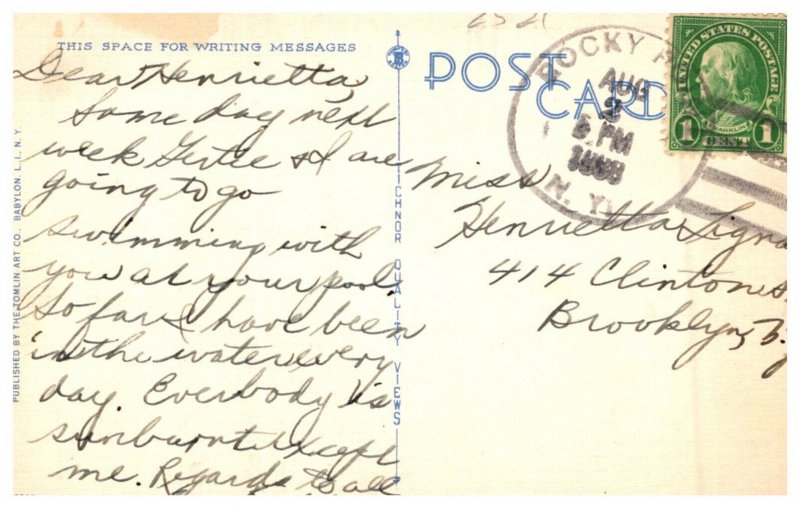 25 21
THIS SPACE FOR WRITING MESSAGES
POST CARD
Dear Henrietta,
Some day next
week Gertie & I are
going to go
swimming with
you at your pool.
So far I have been
in the water every
day. Everbody is
sunburnt except
me. Regards to all
PUBLISHED BY THE TOMLIN ART CO., BABYLON, L. I., N. Y.
TICHNOR QUALITY VIEWS
ROCKY
AUG
2
PM
N. Y.
UNITED STATES POSTAGE
FRANKLIN
1 CENT 1
Miss
Henrietta
414 Clinton
Brooklyn, N.Y